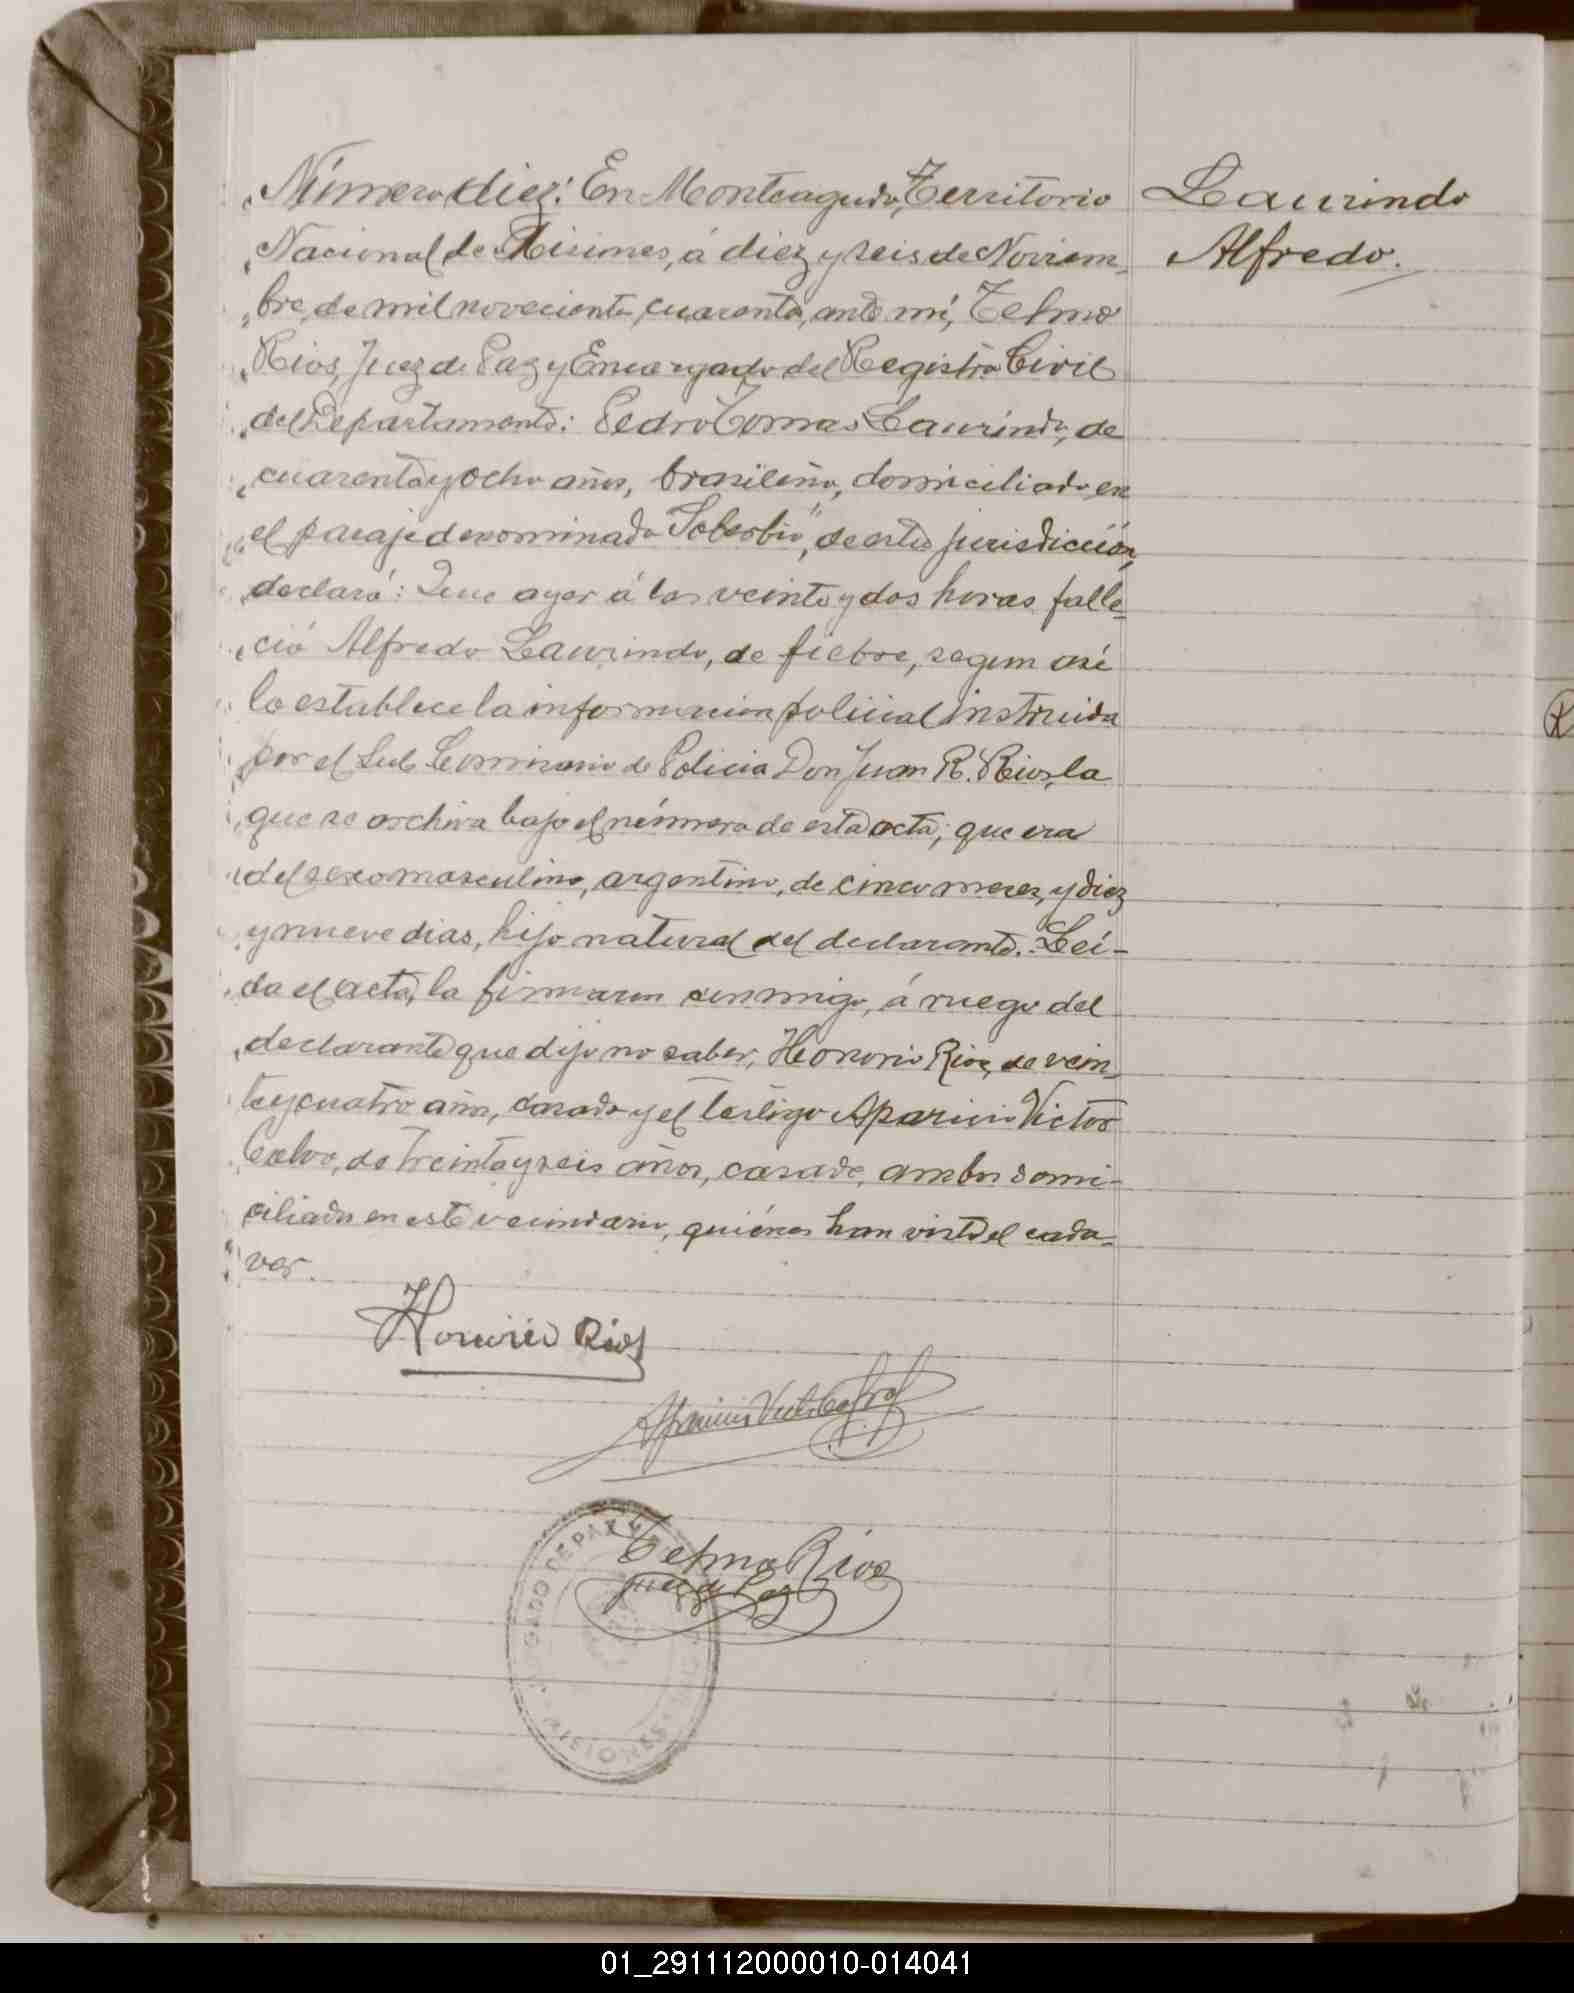 Número diez: En Monteagudo, Territorio
Nacional de Misiones, á diez y seis de Noviem-
bre, de mil novecientos cuarenta, ante mí, Telmo
Rios, Juez de Paz y Encargado del Registro Civil
del Departamento: Pedro Tomas Laurindo, de
cuarenta y ocho años, brasileño, domiciliado en
el paraje denominado "Soberbio", de esta jurisdicción,
declaró: Que ayer á las veinte y dos horas falle-
ció Alfredo Laurindo, de fiebre, segun así
lo establece la informacion policial instruida
por el Sub Comisario de Policia Don Juan R. Rios, la
que se archiva bajo el número de esta acta; que era
del sexo masculino, argentino, de cinco meses, y diez
y nueve dias, hijo natural del declarante. Leí-
da el acta, la firmaron conmigo, á ruego del
declarante que dijo no saber, Honorio Rios, de vein-
te y cuatro años, casado y el testigo Aparicio Victor
Calvo, de treinta y seis años, casado, ambos domi-
ciliados en este vecindario, quiénes han visto el cada-
ver.
Laurindo
Alfredo.
Honorio Rios
Telmo Rios
Juez de Paz
JUZGADO DE PAZ
MISIONES
01_291112000010-014041